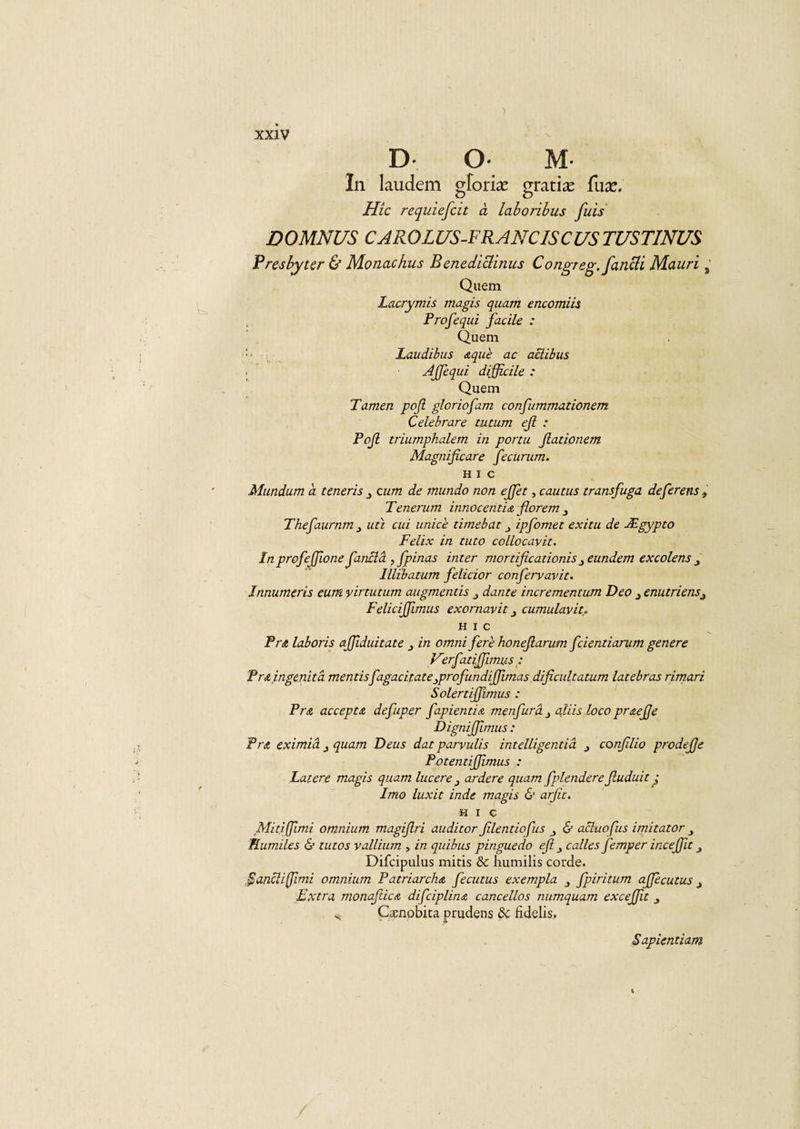 xxiv
D· O· M·
In laudem gloriæ gratiæ ſuæ.
Hic requieſcit à laboribus ſuis
DOMNUS CAROLUS-FRANCISCUS TUSTINUS
Presbyter & Monachus Benedictinus Congreg. ſancti Mauri,
Quem
Lacrymis magis quam encomiis
Proſequi facile :
Quem
Laudibus æquè ac actibus
Aſſequi difficile :
Quem
Tamen poſt glorioſam conſummationem
Celebrare tutum eſt :
Poſt triumphalem in portu ſtationem
Magnificare ſecurum.
HIC
Mundum à teneris, cum de mundo non eſſet, cautus transfuga deferens,
Tenerum innocentiæ florem,
Theſaurnm, utì cui unicè timebat, ipſomet exitu de Ægypto
Felix in tuto collocavit.
In profeſſione ſanctâ, ſpinas inter mortificationis, eundem excolens,
Illibatum felicior conſervavit.
Innumeris eum virtutum augmentis, dante incrementum Deo, enutriens,
Feliciſſimus exornavit, cumulavit.
HIC
Præ laboris aſſiduitate, in omni ferè honeſtarum ſcientiarum genere
Verſatiſſimus :
Præ ingenitâ mentis ſagacitate, profundiſſimas dificultatum latebras rimari
Solertiſſimus :
Præ acceptæ deſuper ſapientiæ menſurâ, aliis loco præeſſe
Digniſſimus :
Præ eximiâ, quam Deus dat parvulis intelligentiâ, conſilio prodeſſe
Potentiſſimus :
Latere magis quam lucere, ardere quam ſplendere ſtuduit ;
Imo luxit inde magis & arſit.
HIC
Mitiſſimi omnium magiſtri auditor ſilentioſus, & actuoſus imitator,
Humiles & tutos vallium, in quibus pinguedo eſt, calles ſemper inceſſit,
Diſcipulus mitis & humilis corde.
Sanctiſſimi omnium Patriarchæ ſecutus exempla, ſpiritum aſſecutus,
Extra monaſticæ diſciplinæ cancellos numquam exceſſit,
Cænobita prudens & fidelis.
Sapientiam